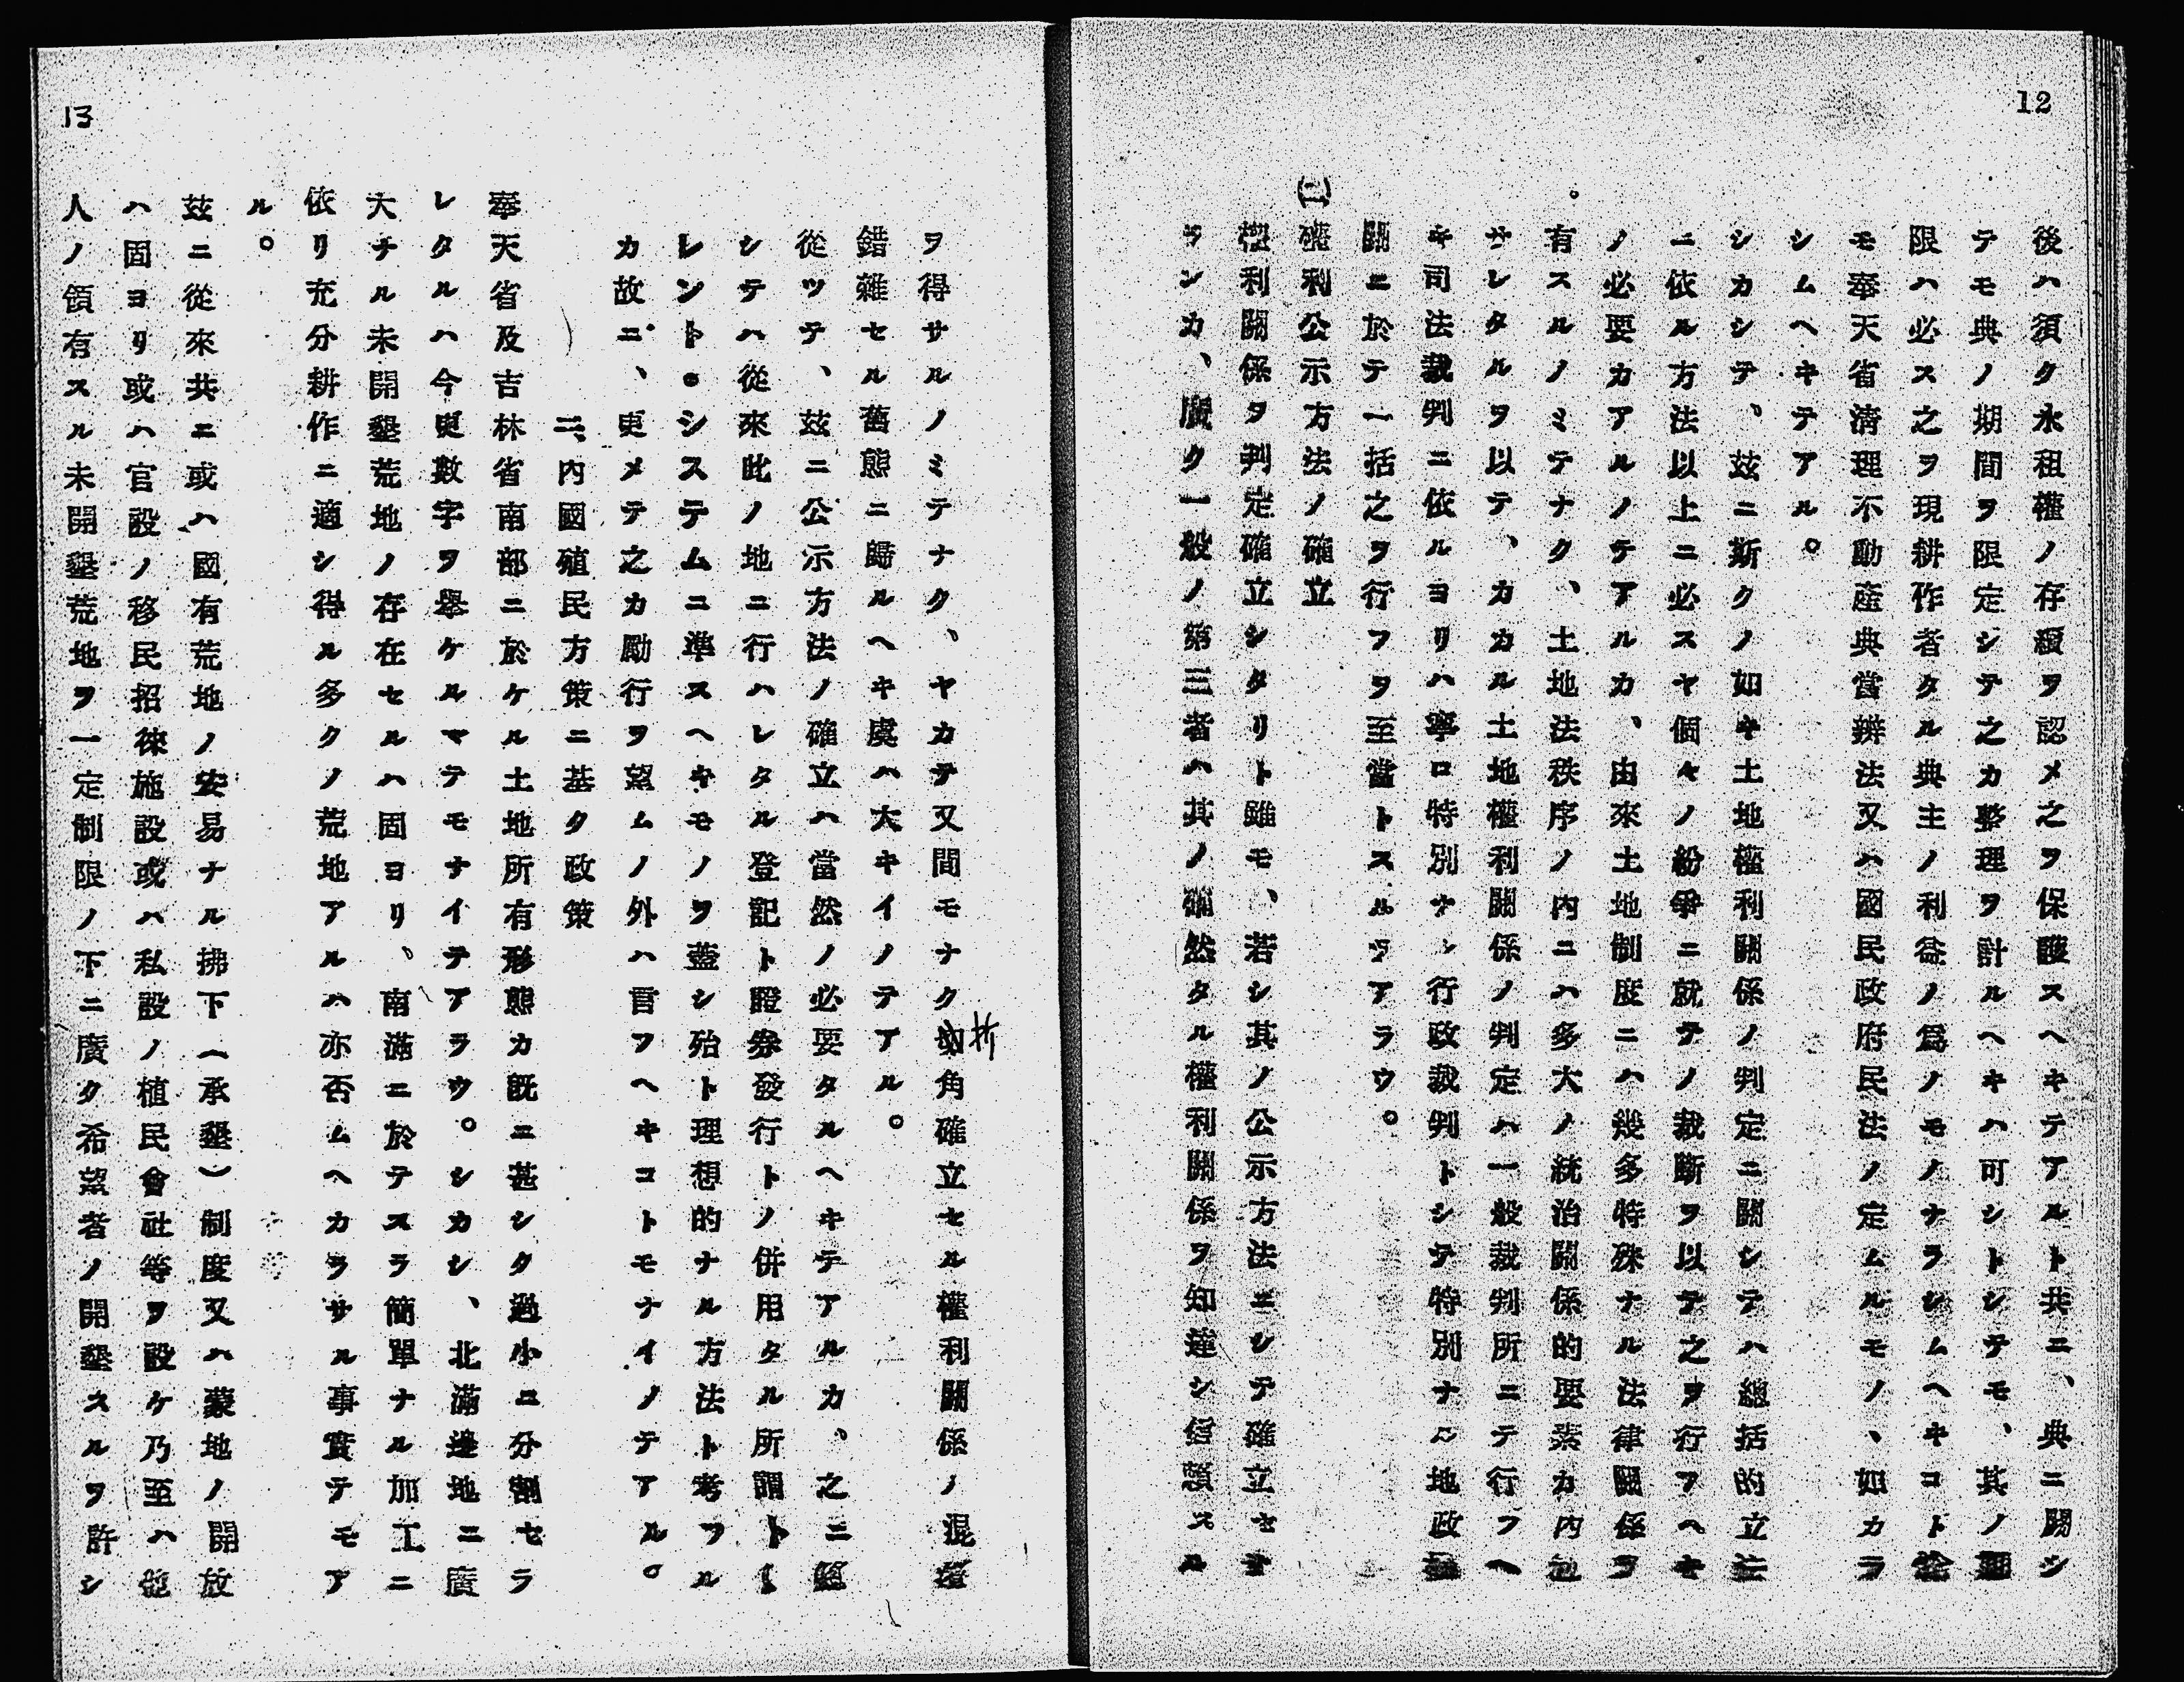 12
後ハ須ク永租權ノ存續ヲ認メ之ヲ保護スヘキテアルト共ニ、典ニ關シ
テモ典ノ期間ヲ限定シテ之カ整理ヲ計ルヘキハ可シトシテモ、其ノ
限ハ必ス之ヲ現耕作者タル典主ノ利益ノ爲ノモノナラシムヘキコト
モ奉天省清理不動産典當辨法又ハ國民政府民法ノ定ムルモノ、如カラ
シムヘキテアル。
シカシテ、茲ニ斯クノ如キ土地權利關係ノ判定ニ關シテハ總括的立法
ニ依ル方法以上ニ必スヤ個々ノ紛爭ニ就テノ裁斷ヲ以テ之ヲ行フヘキ
ノ必要カアルノテアルカ、由來土地制度ニハ幾多特殊ナル法律關係ヲ
有スルノミテナク、土地法秩序ノ内ニハ多大ノ統治關係的要素カ内包
サレタルヲ以テ、カカル土地權利關係ノ判定ハ一般裁判所ニテ行フヘ
キ司法裁判ニ依ルヨリハ寧ロ特別ナシ行政裁判トシテ特別ナ地政
關ニ於テ一括之ヲ行フヲ至當トスルテアラウ。
㈡ 權利公示方法ノ確立
權利關係ヲ判定確立シタリト雖モ、若シ其ノ公示方法ニシテ確立セサ
ランカ、廣ク一般ノ第三者ハ其ノ確然タル權利關係ヲ知達シ信頼スル
13
ヲ得サルノミテナク、ヤカテ又間モナク折角確立セル權利關係ノ混淆
錯雜セル舊態ニ歸ルヘキ虞ハ大キイノテアル。
從ツテ、茲ニ公示方法ノ確立ハ當然ノ必要タルヘキテアルカ、之ニ關
シテハ從來此ノ地ニ行ハレタル登記ト證券發行トノ併用タル所謂トー
レント・システムニ準スヘキモノヲ蓋シ殆ト理想的ナル方法ト考フル
カ故ニ、更メテ之カ勵行ヲ望ムノ外ハ言フヘキコトモナイノテアル。
二、内國殖民方策ニ基ク政策
奉天省及吉林省南部ニ於ケル土地所有形態カ既ニ甚シタ過小ニ分割セラ
レタルハ今更數字ヲ擧ケルマテモナイテアラウ。シカシ、北滿邊地ニ廣
大ナル未開墾荒地ノ存在セルハ固ヨリ、南滿ニ於テスラ簡單ナル加工ニ
依リ充分耕作ニ適シ得ル多クノ荒地アルハ亦否ムヘカラサル事實テモア
ル。
茲ニ從來共ニ或ハ國有荒地ノ安易ナル拂下（承墾）制度又ハ蒙地ノ開放
ハ固ヨリ或ハ官設ノ移民招徠施設或ハ私設ノ植民會社等ヲ設ケ乃至ハ他
人ノ領有スル未開墾荒地ヲ一定制限ノ下ニ廣ク希望者ノ開墾スルヲ許シ